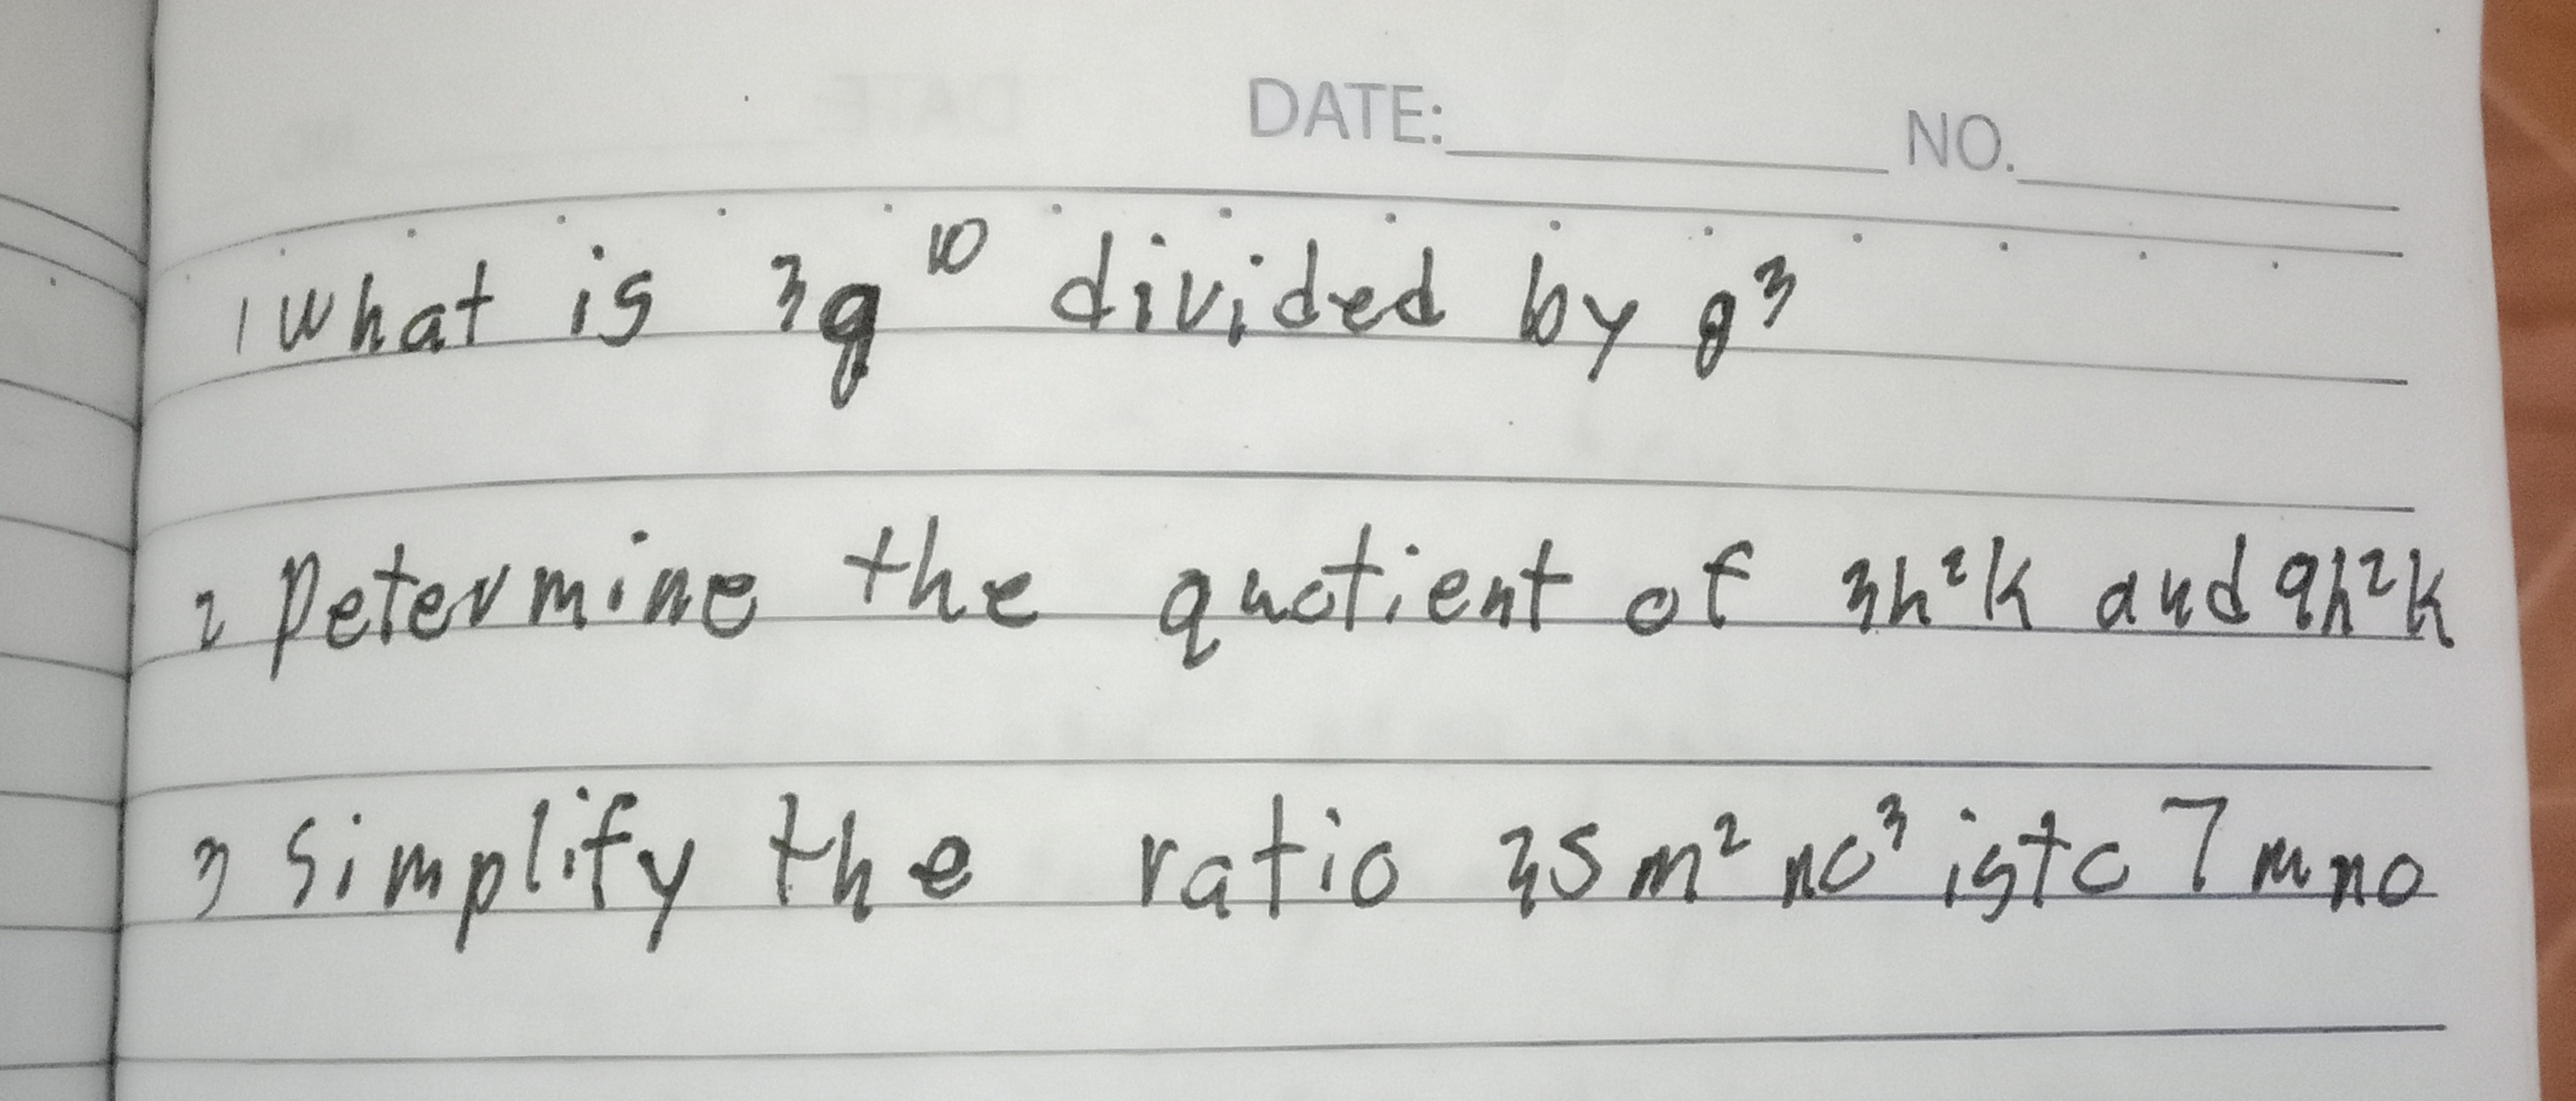 DATE: NO.
1 What is 3g¹⁰ divided by g³
2 Determine the quotient of 3h²k and 9h²k
3 Simplify the ratio 35m²no³ isto 7mno